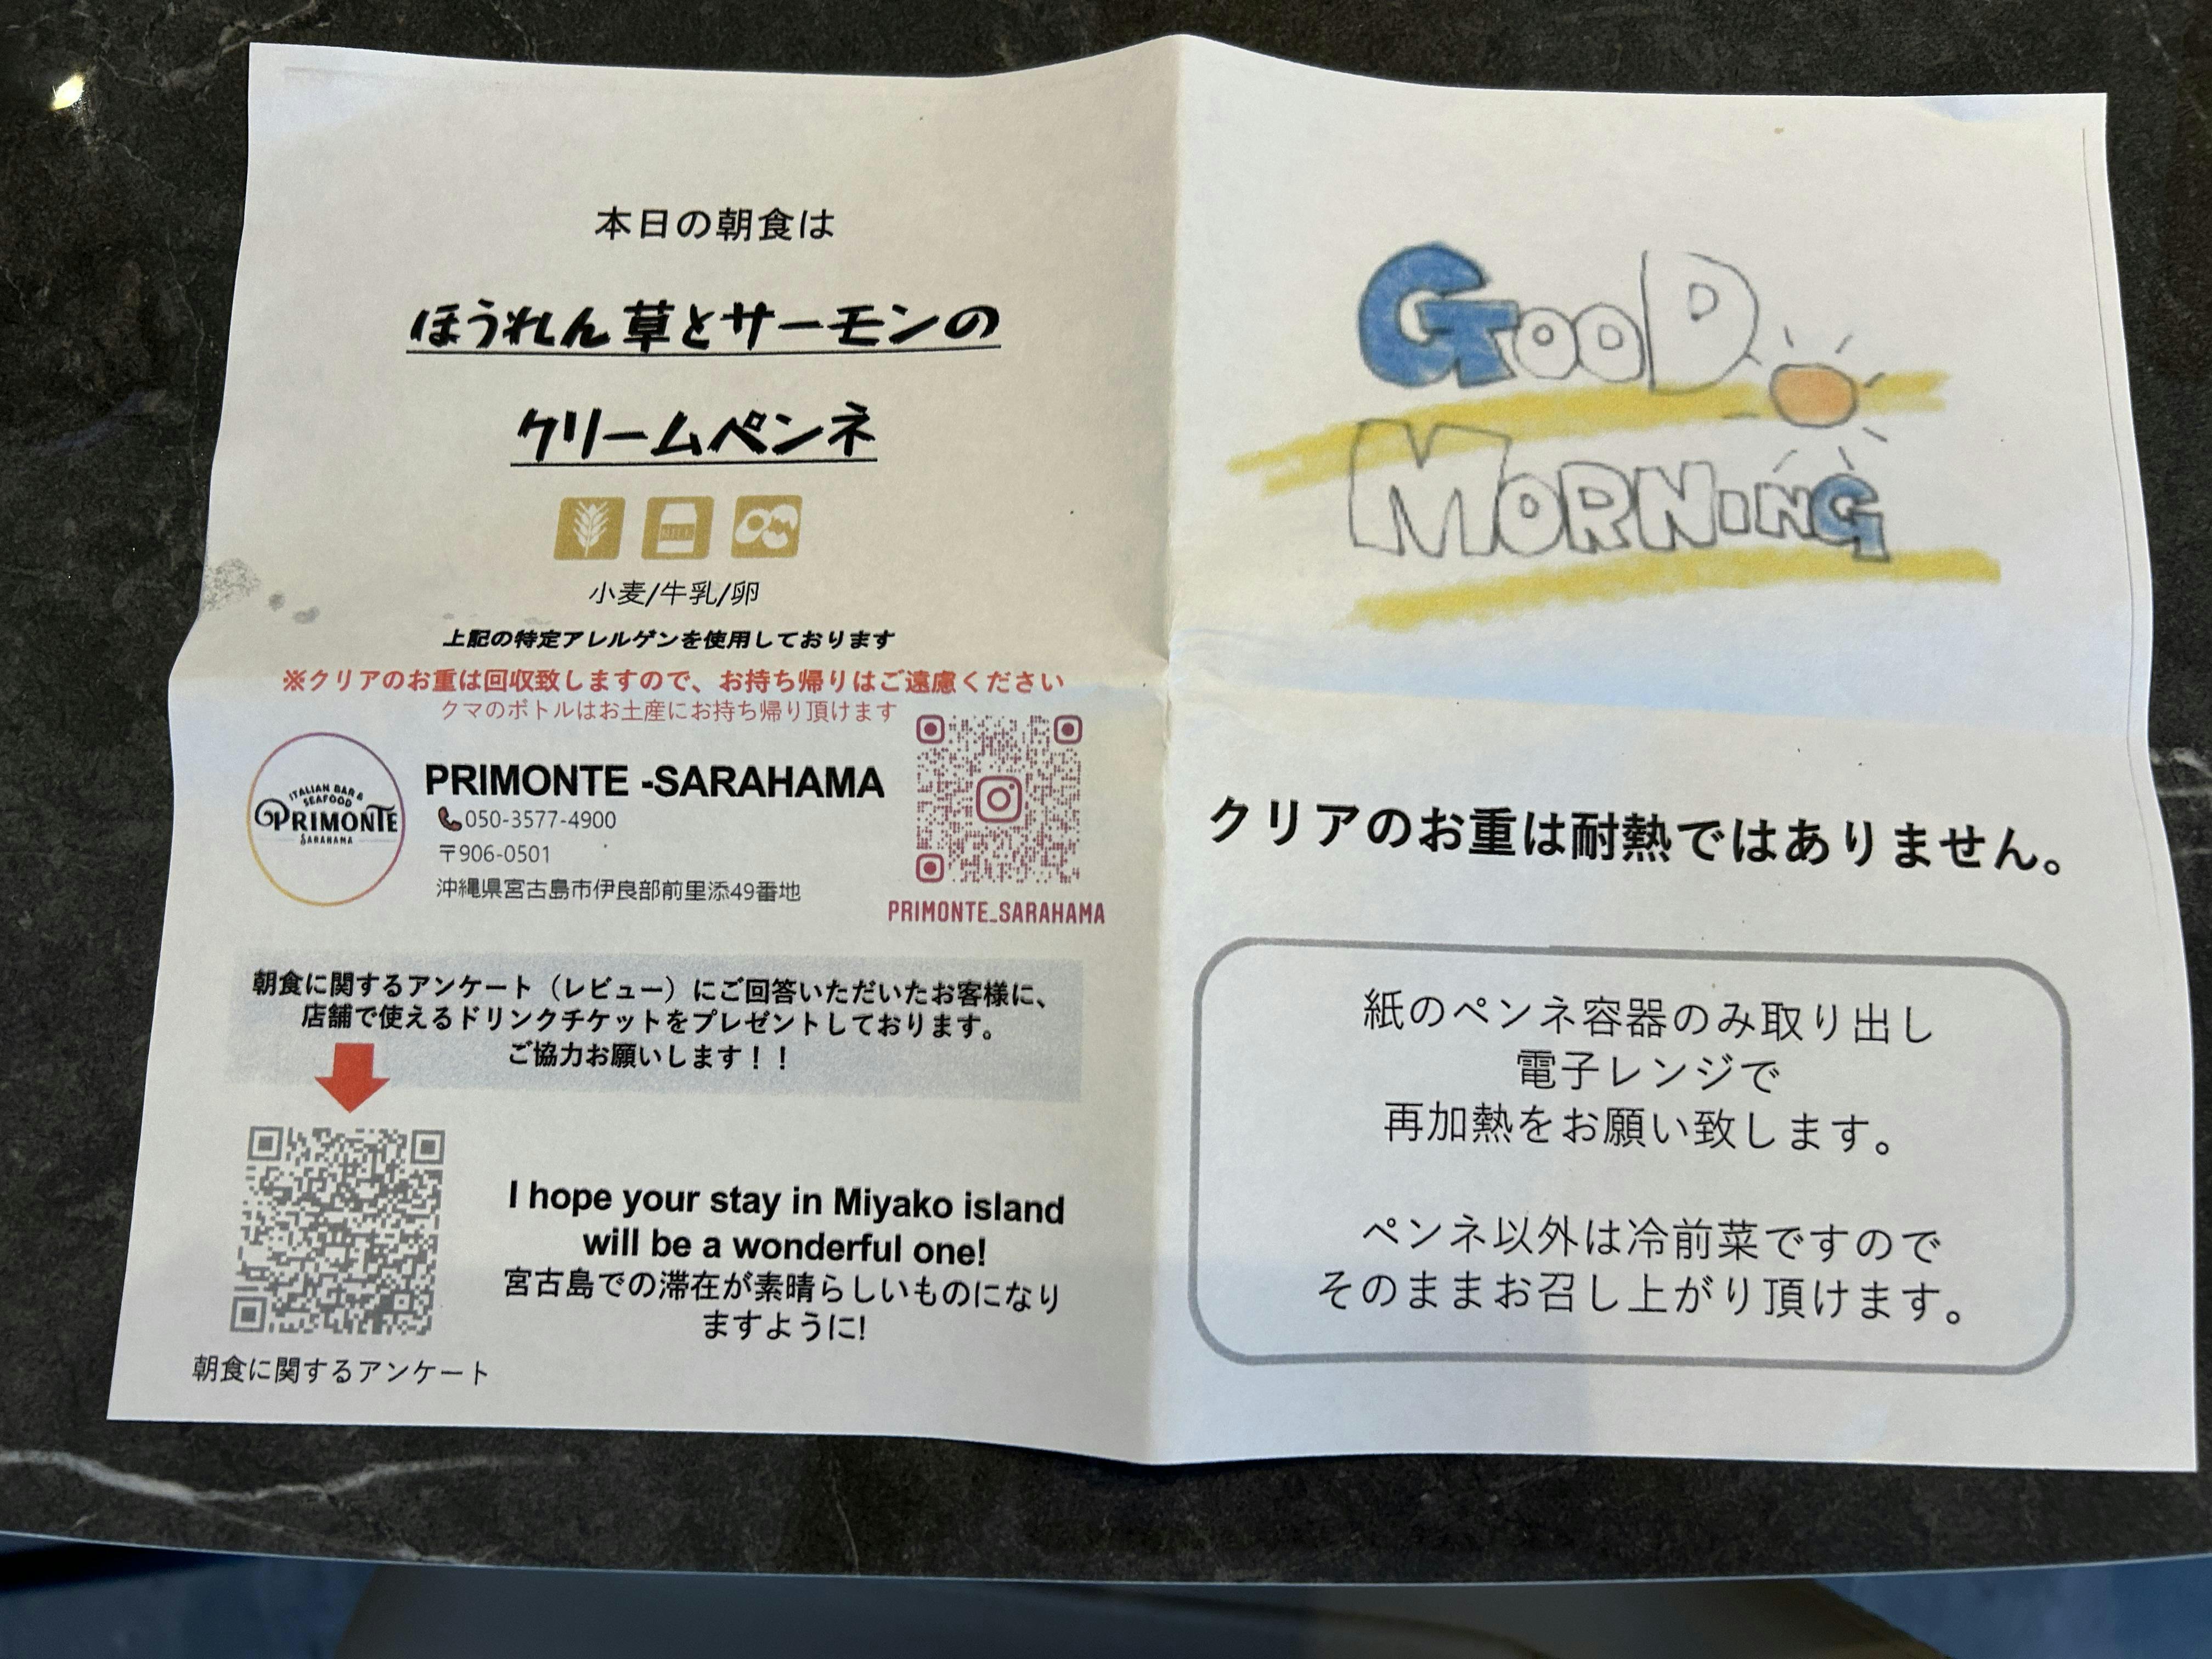 本日の朝食は
ほうれん草とサーモンの
クリームペンネ
MILK
小麦/牛乳/卵
上記の特定アレルゲンを使用しております
※クリアのお重は回収致しますので、お持ち帰りはご遠慮ください
クマのボトルはお土産にお持ち帰り頂けます
ITALIAN BAR &
SEAFOOD
PRIMONTE
SARAHAMA
PRIMONTE -SARAHAMA
050-3577-4900
〒906-0501
沖縄県宮古島市伊良部前里添49番地
PRIMONTE_SARAHAMA
朝食に関するアンケート（レビュー）にご回答いただいたお客様に、
店舗で使えるドリンクチケットをプレゼントしております。
ご協力お願いします！！
I hope your stay in Miyako island
will be a wonderful one!
宮古島での滞在が素晴らしいものになり
ますように!
朝食に関するアンケート
GOOD
MORNING
クリアのお重は耐熱ではありません。
紙のペンネ容器のみ取り出し
電子レンジで
再加熱をお願い致します。
ペンネ以外は冷前菜ですので
そのままお召し上がり頂けます。